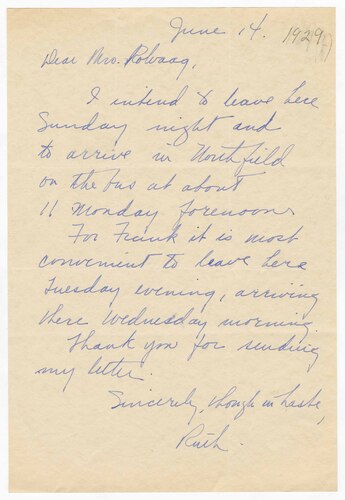 June 14. 1929
Dear Mrs. Rolvaag,
I intend to leave here
Sunday night and
to arrive in Northfield
on the bus at about
11 Monday forenoon.
For Frank it is most
convenient to leave here
Tuesday evening, arriving
there Wednesday morning.
Thank you for sending
my letter.
Sincerely, though in haste,
Ruth.